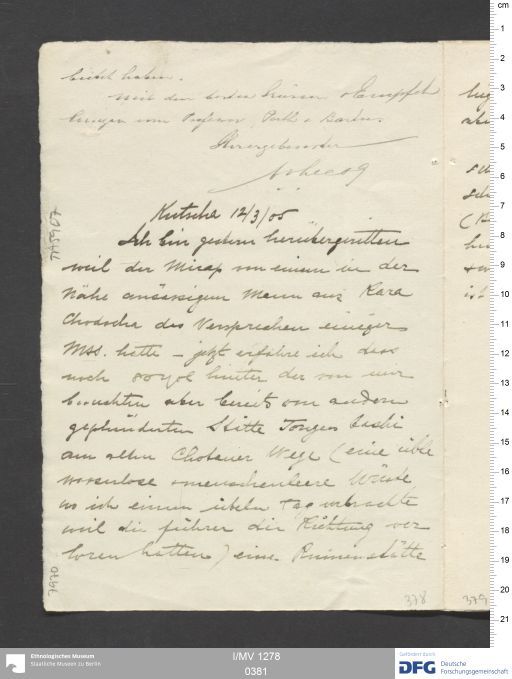 leicht haben.
mit den besten Grüssen &
vom Professor, &
Ihr ergebenster
Kutscha 12/3/05
Ich bin gestern herübergeritten
weil der von einem in der
Nähe ansässigen Mann aus Kara
Chodscha das Versprechen einiger
Mss. hatte – jetzt erfahre ich dass
noch hinter der von mir
besuchten aber bereits von andern
geplünderten Stätte Tongus baschi
am alten Chotaner Wege (eine üble
wasserlose & menschenleere Wüste
wo ich einen übeln Tag verbrachte
weil die Führer die Richtung ver
loren hatten) eine Ruinenstätte
TA5967
7970
378
379
Ethnologisches Museum
Staatliche Museen zu Berlin
I/MV 1278
0381
Gefördert durch
DFG Deutsche
Forschungsgemeinschaft
cm
1
2
3
4
5
6
7
8
9
10
11
12
13
14
15
16
17
18
19
20
21